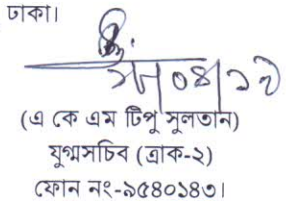 ঢাকা।
(এ কে এম টিপু সুলতান)
যুগ্মসচিব (ত্রাক-২)
ফোন নং-৯৫৪০১৪৩।